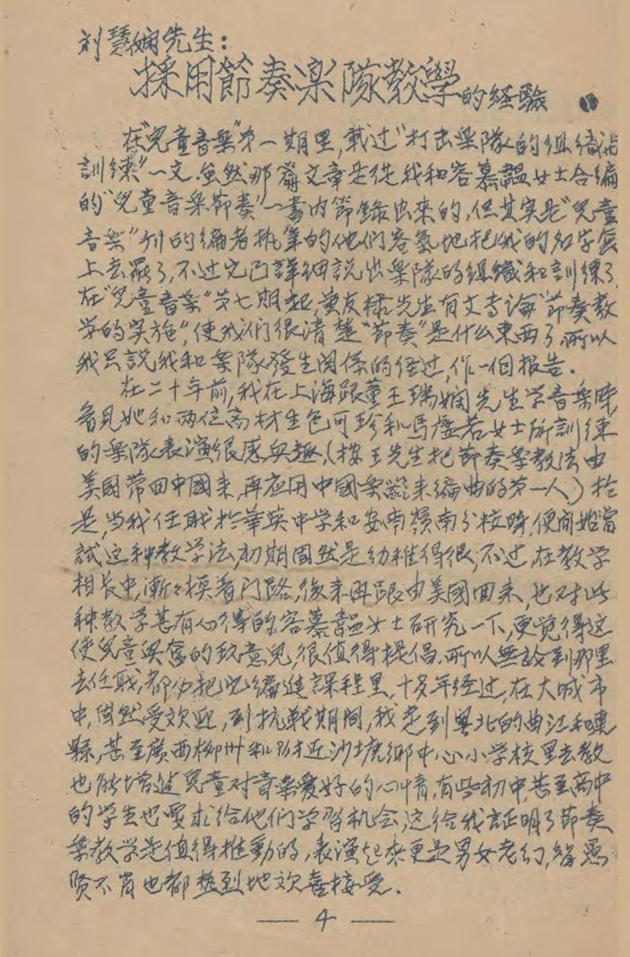 刘慧娴先生：
採用節奏楽隊教學的经驗
在"兒童音楽"第一期里,載过"打击楽隊的组織和
訓練"一文.虽然那篇文章是從我和容慕韞女士合編
的"兒童音楽節奏"一書内節錄出来的,但其实是"兒童
音楽"刊的编者执筆的他們客氣地把我的名字套
上去罢了,不过它已詳细説出楽隊的组織和訓練了.
在"兒童音楽"第七期起,黄友棣先生有文专論"節奏教
学的实施",使我们很清楚"節奏"是什么東西了,所以
我只説我和楽隊發生関係的经过,作一個报告.
在二十年前,我在上海跟董王瑞娴先生学音楽時,
看見她和两位高材生包可珍和馬虚若女士所訓練
的楽隊表演很感兴趣,(按王先生把節奏楽教法由
美國带回中國来,再应用中國楽器来编曲的第一人)於
是,当我任職於華英中学和安南嶺南分校時,便開始嘗
試这种教学法,初期固然是幼稚得很,不过,在教学
相长中,漸々摸着门路,後来再跟由美國回来,也对此
种教学甚有心得的容慕韞女士研究一下,更觉得这
使兒童兴奮的玩意兒,很值得提倡.所以無論到那里
去任職,都力把它編進課程里,十多年经过,在大城市
中,固然受欢迎,到抗戰期间,我走到粤北的曲江和連
縣,甚至廣西柳州和附近沙塘鄉中心小学校里去教
也能增進兒童对音楽爱好的心情,有些初中甚至高中
的学生也要求给他们学習机会,这给我証明了節奏
楽教学是值得推動的,表演起来更是男女老幼,智愚
贤不肖也都热烈地欢喜接受.
— 4 —